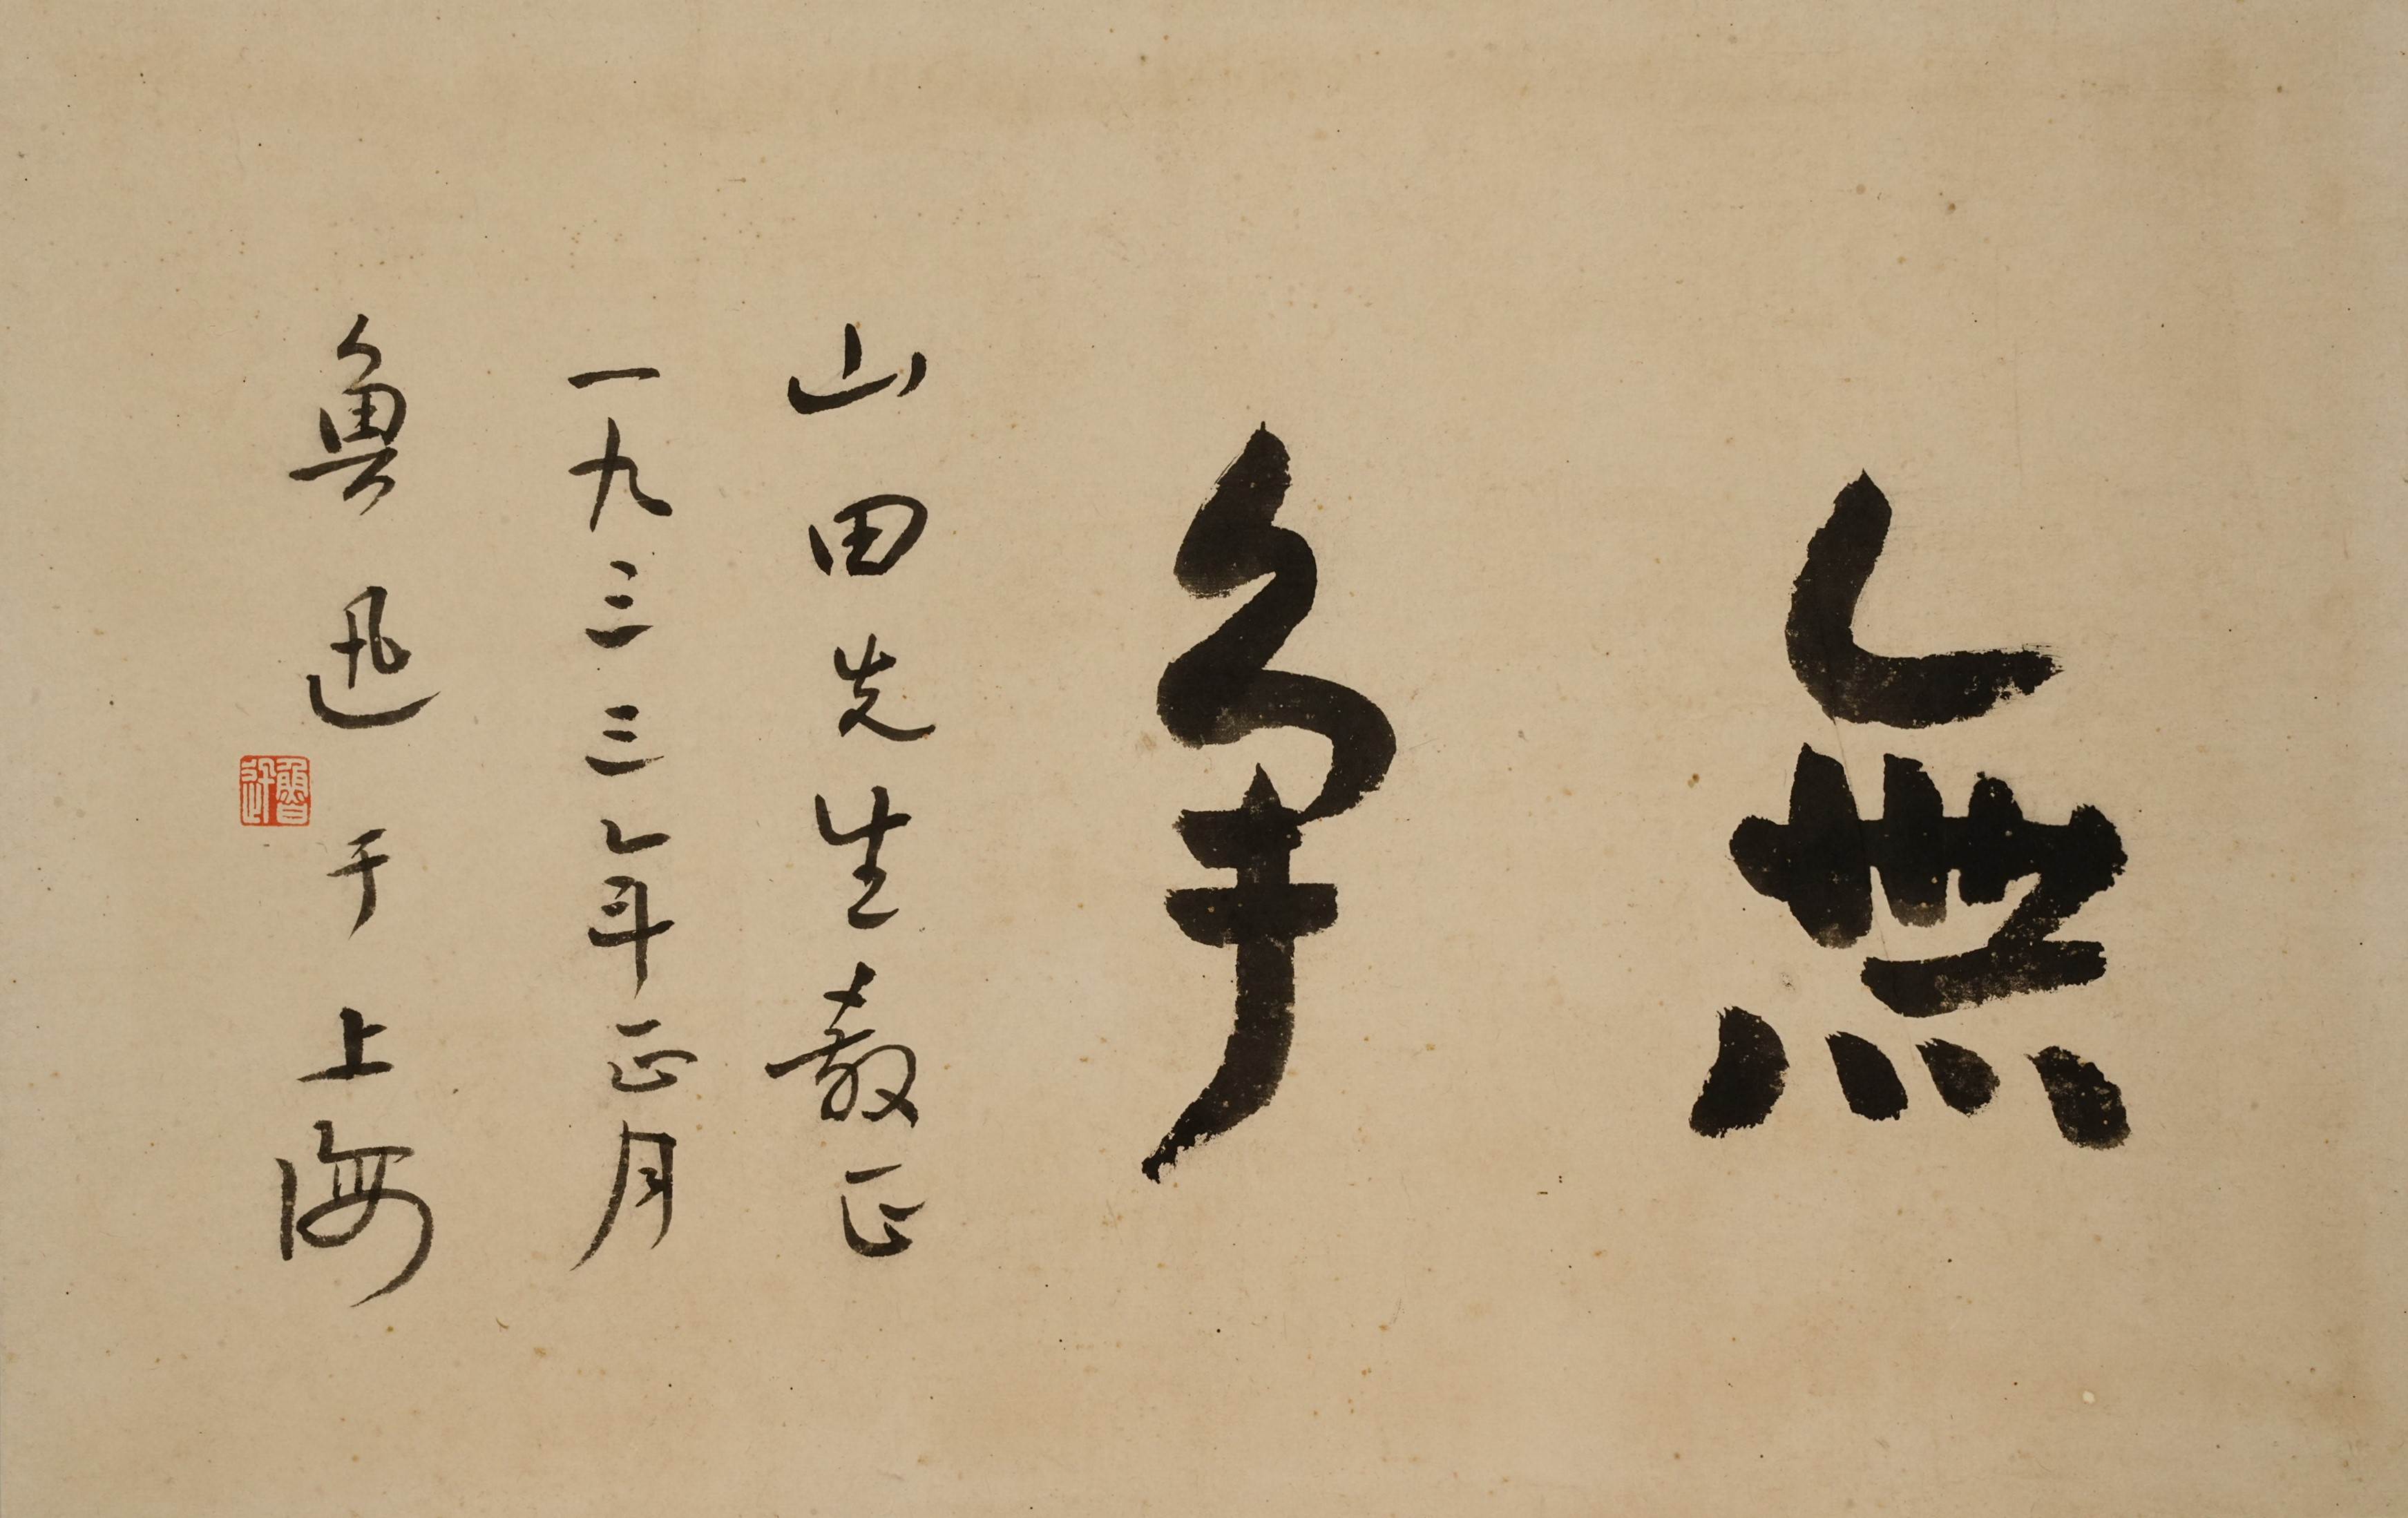 無爭
山田先生教正
一九三三年正月
魯迅于上海
魯迅